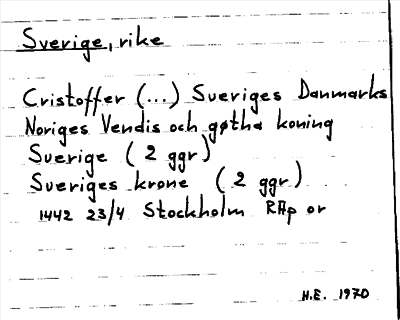 Sverige, rike
Cristoffer (...) Sueriges Danmarks
Noriges Vendis och gøtha koning
Sverige (2 ggr)
Sueriges krone (2 ggr)
1442 23/4 Stockholm RAp or
H.E. 1970